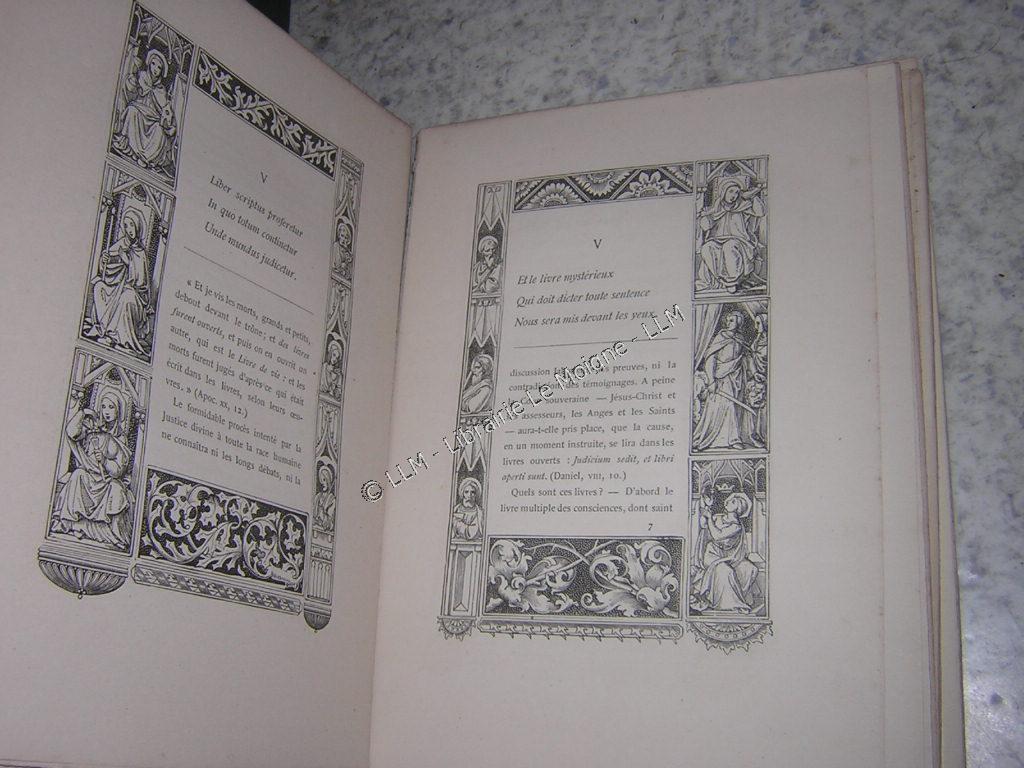 V
Liber scriptus proferetur
In quo totum continetur
Unde mundus judicetur.
« Et je vis les morts, grands et petits,
debout devant le trône ; et des livres
furent ouverts, et puis on en ouvrit un
autre, qui est le Livre de vie : et les
morts furent jugés d'après ce qui était
écrit dans les livres, selon leurs œu-
vres. » (Apoc. xx, 12.)
Le formidable procès intenté par la
Justice divine à toute la race humaine
ne connaîtra ni les longs débats, ni la
V
Et le livre mystérieux
Qui doit dicter toute sentence
Nous sera mis devant les yeux.
discussion preuves, ni la
contradiction des témoignages. A peine
souveraine — Jésus-Christ et
assesseurs, les Anges et les Saints
— aura-t-elle pris place, que la cause,
en un moment instruite, se lira dans les
livres ouverts : Judicium sedit, et libri
aperti sunt. (Daniel, VIII, 10.)
Quels sont ces livres ? — D'abord le
livre multiple des consciences, dont saint
7
© LLM - Librairie Le Moigne - LLM